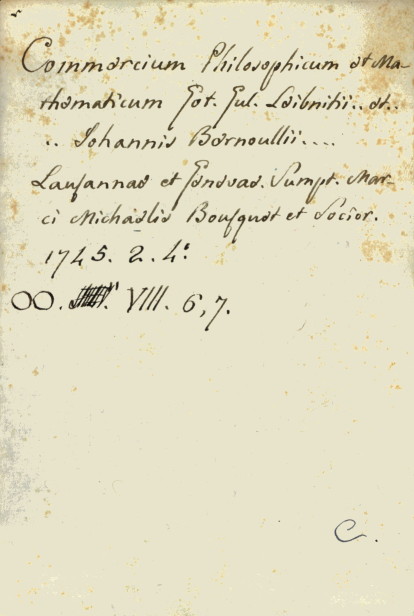 Commercium Philosophicum et Ma-
thematicum Got. Gul. Leibnitii.. et..
.. Johannis Bernoullii....
Lausannae et Genevae. Sumpt. Mar-
ci Michaelis Bousquet et Socior.
1745. 2. 4º
OO. VIII. 6, 7.
C.